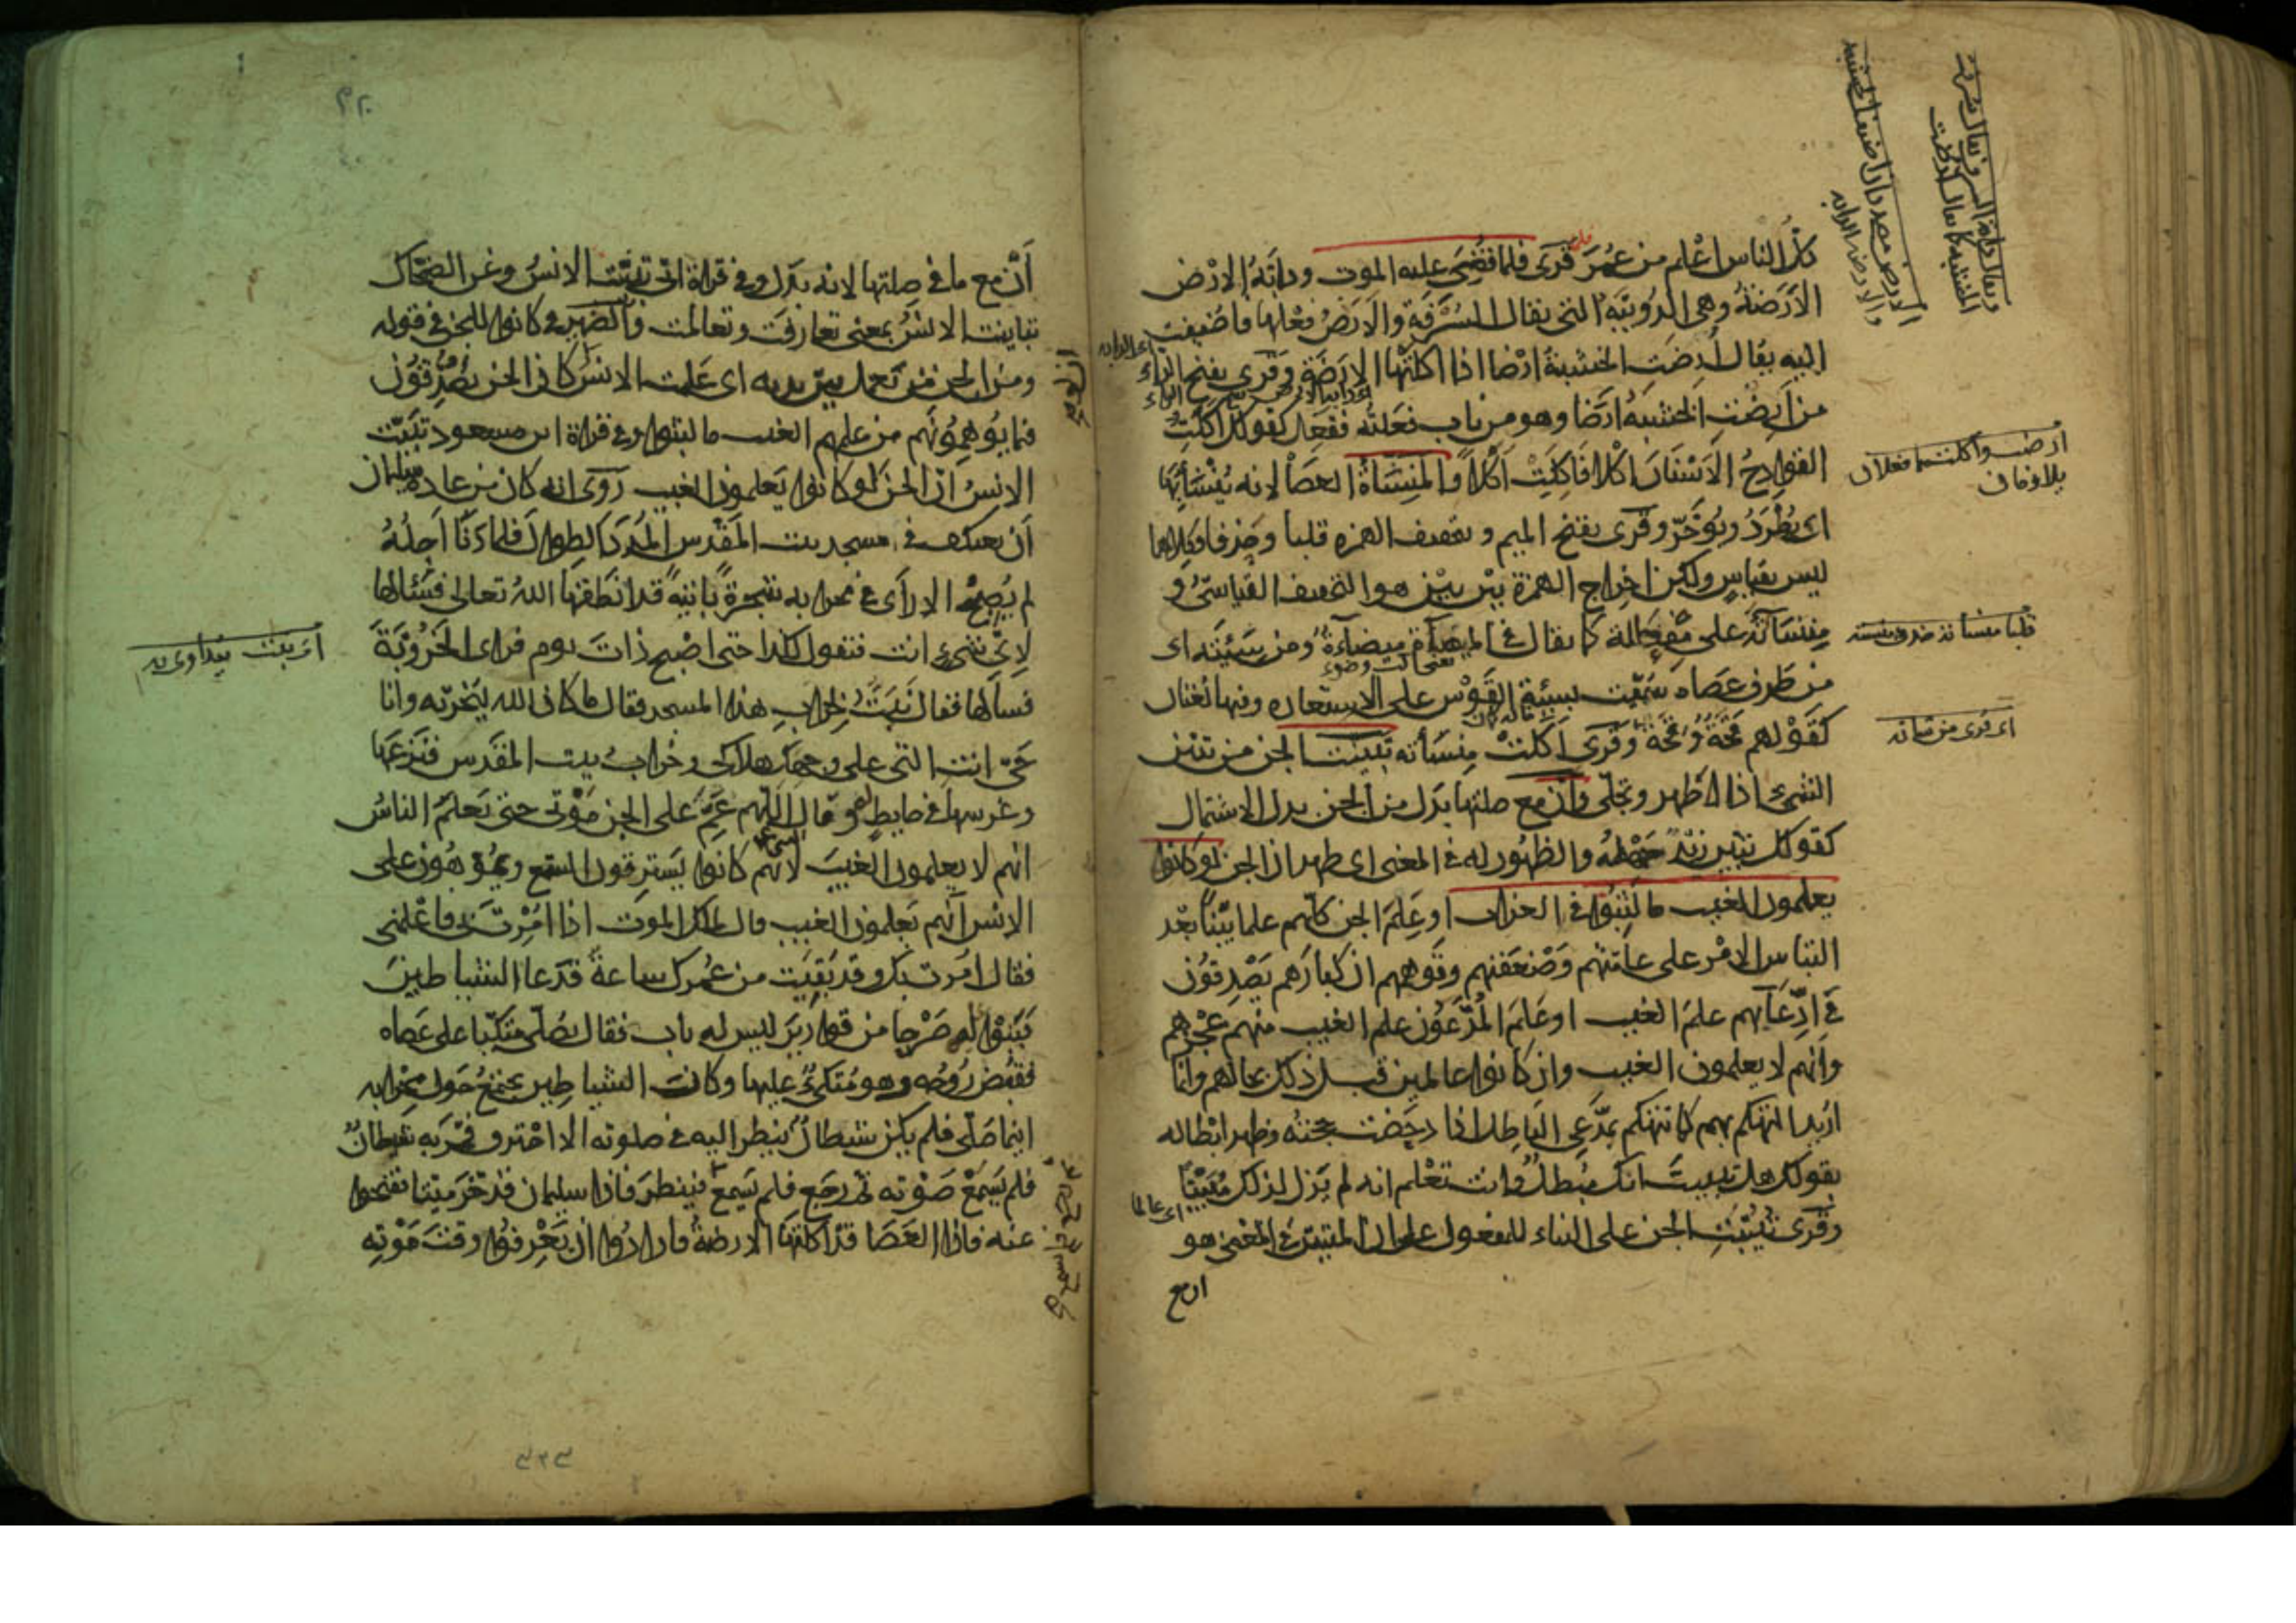 كلّ الناس اعْلم من عُمَرَ قرى فلما قضى عليه الموت ودابّة الارْض
الاَرَضَةُ وهى الدويبّة التى يقال السُّرْفَة والارَضُ فعْلها فاضيفت
اليه يقال أُرِضَت الخشبة ارْضا اذا اكلَتْها الارَضَة وقرى بفتح الراء
من اَرِضَت الخشبة ارَضا وهو من باب فعَلته ففعِل كقولك اكلَتْ
القوادِحُ الاَسْنان اكْلا فاَكِلَتْ اَكَلاً والمِنسَأة العصا لانه يُنْسَأ بها
اى يُطْرَدُ ويُؤخَّر وقرى بفتح الميم وبتخفيف الهمزه قلبا وحذفا وكلاهما
ليس بقياس ولكن اخراج الهمزة بيْن بيْن هو التخفيف القياسىّ و
مِنسَآته على مِفْعالة كما يقال فى الميضأة ميضاءة ومن سِئَته اى
من طرف عصاه سُمّيت بسِئة القَوْس على الاستعاره وفيها لغتان
كقَوْلهم قِحَةٌ وقَحَة وقرى اَكلَتْ مِنسَأته تبيّنت الجن من تبيّن
الشىء اذا ظهر وتجلّى وأن مع صلتها بدَل من الجن بدل الاشتمال
كقولك تبيّن زيْدٌ جَهْلُه والظهُور له فى المعنى اى ظهر ان الجن لو كانوا
يعلمون الغيب ما لبثوا فى العذاب او عَلِمَ الجن كلّهم علما بيّنا بعْد
التباس الامْر على عامّتهم وضعَفتهم وتوهّمهم ان كبارَهم يَصْدقُون
فى ادِّعَآيهم علمَ الغيب او عَلمَ المُدّعُون علم الغيب منهم عجْزهم
وانهم لا يعلمون الغيب وان كانوا عالمين قبل ذلك بحالهم وانما
اريد التهكم بهم كما تتهكم بمدّعى الباطل اذا دحَضت حجّته وظهر ابْطاله
بقولك هل تبيّنتَ انك مُبطل وانت تعْلم انه لم يَزل لذلك مُتبيّنًا
وقرى تُبُيّنتِ الجن على البناء للمفعول على ان المتبيّن فى المعْنى هو
ان مع
اَنْ مع ما فى صِلتها لانه بدَل وفى قراة ابىّ تبيّنت الانسُ وعن الضحّاك
تباينت الانسُ بمعنى تعارفَت وتعالمت والضمير فى كانوا للجن فى قوله
ومن الجن من يَعمل بين يديه اى عَلمت الانسُ ان لو كان الجن يَصْدقُون
فيما يُوهِمُونَهم من علمهم الغيب ما لبثوا وفى قراة ابن مسعود تبيّنت
الانسُ انّ الجن لو كانوا يَعلمون الغيب رُوِى انه كان من عادة سليمان
اَن يعتكف فى مسجد بيت المَقْدس المُدَدَ الطوال فلما دَنا اَجلُهُ
لم يُصْبح الا رأى فى محرابه شجرةً نابتةً قد انطقها اللهُ تعالى فسَئالها
لاىّ شىء انت فتقول لكذا حتى اصْبح ذاتَ يوم فراى الخرّوبَة
فسألها فقال نَبَتُّ لخراب هذا المسجد فقال ما كان الله ليُخرّبه وانا
حىّ انت التى على وجهك هلاكى وخراب بيت المقَدس فنزعَها
وغرسها فى حايطٍ له وقال اللّهم عَمِّ على الجن مَوْتى حتى يَعلم الناسُ
انهم لا يعلمون الغيبَ لانهم كانوا يَسترقون السّمع ويُموّهُون على
الانس انّهم يَعلمون الغيب وقال لملك الموت اذا اُمِرْتَ بى فاعْلمنى
فقال اُمِرت بك وقد بَقِيَت من عُمرك ساعةٌ فدَعا الشياطين
فبَنوْا له صَرْحا من قواريرَ ليس له باب فقال يُصَلّى متّكئا على عَصاه
فقبض رُوحُه وهو مُتّكئٌ عليها وكانت الشياطين تجتمعُ حَول محْرابه
اينما صَلّى فلم يكن شيطانٌ ينظر اليه فى صلوته الا احْترق فمرّ به شيطانٌ
فلم يَسمعْ صَوْته ثم رجَع فلم يَسمع فينظر فاذا سليمان قد خَرّ ميّتا ففتحوا
عنه فاذا العَصَا قد اكلتها الارضةُ فارادُوا انْ يَعْرفوا وقتَ مَوْته